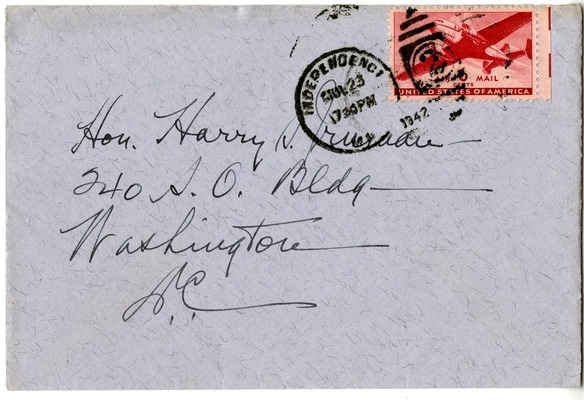 INDEPENDENCE
1942
MAIL
CENTS
UNITED STATES OF AMERICA
Hon. Harry S. Truman
240 S. O. Bldg
Washington
D.C.